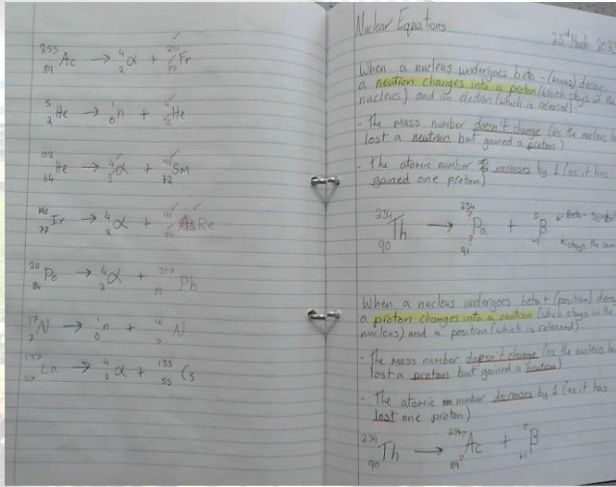 255 89 Ac → 4 2 α + 251 87 Fr
5 2 He → 1 0 n + 4 2 He
He → 4 2 α + Sm
Ir → 4 2 α + Re
Po → 4 2 α + Pb
17 N → 1 0 n + N
137 57 La → 4 2 α + 133 55 Cs
Nuclear Equations
23rd March
When a nucleus undergoes beta - (minus) decay,
a neutron changes into a proton (which stays in
nucleus) and an electron (which is released).
- The mass number doesn't change (as the nucleus
lost a neutron but gained a proton)
- The atomic number increases by 1 (as it has
gained one proton)
234 90 Th → 234 ? 91 ? Pa + 0 -1 β
Beta - Symbol
stays the same
When a nucleus undergoes beta + (positron)
a proton changes into a neutron (which stays in the
nucleus) and a positron (which is released).
- The mass number doesn't change (as the nucleus
lost a proton but gained a neutron)
- The atomic number decreases by 1 (as it has
lost one proton)
234 90 Th → 234 ? 89 ? Ac + 0 +1 β